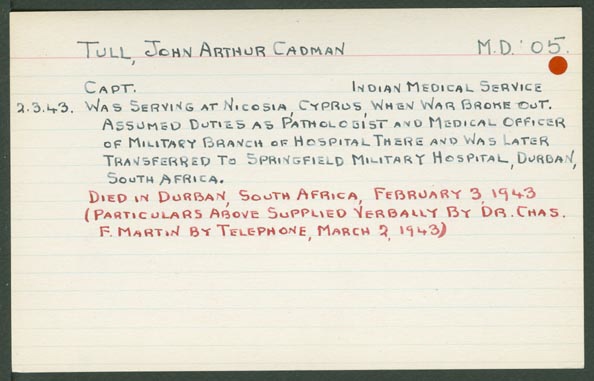 TULL, JOHN ARTHUR CADMAN M.D. '05.
CAPT. INDIAN MEDICAL SERVICE
2.3.43. WAS SERVING AT NICOSIA, CYPRUS, WHEN WAR BROKE OUT.
ASSUMED DUTIES AS PATHOLOGIST AND MEDICAL OFFICER
OF MILITARY BRANCH OF HOSPITAL THERE AND WAS LATER
TRANSFERRED TO SPRINGFIELD MILITARY HOSPITAL, DURBAN,
SOUTH AFRICA.
DIED IN DURBAN, SOUTH AFRICA, FEBRUARY 3, 1943
(PARTICULARS ABOVE SUPPLIED VERBALLY BY DR. CHAS.
F. MARTIN BY TELEPHONE, MARCH 2, 1943)